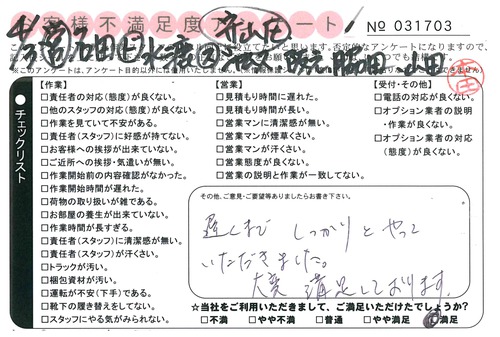 お客様不満足度アンケート
No 031703
※このアンケートは、アンケート目的以外には使用いたしません。
チェックリスト
【作業】
□責任者の対応(態度)が良くない。
□他のスタッフの対応(態度)が良くない。
□作業を見ていて不安がある。
□責任者(スタッフ)に好感が持てない。
□お客様への挨拶が出来ていない。
□ご近所への挨拶・気遣いが無い。
□作業開始前の内容確認がなかった。
□作業開始時間が遅れた。
□荷物の取り扱いが雑である。
□お部屋の養生が出来ていない。
□作業時間が長すぎる。
□責任者(スタッフ)に清潔感が無い。
□責任者(スタッフ)が汗くさい。
□トラックが汚い。
□梱包資材が汚い。
□運転が不安(下手)である。
□靴下の履き替えをしてない。
□スタッフにやる気がみられない。
【営業】
□見積もり時間に遅れた。
□見積もり時間が長い。
□営業マンに清潔感が無い。
□営業マンが煙草くさい。
□営業マンが汗くさい。
□営業態度が良くない。
□営業の説明と作業が一致してない。
【受付・その他】
□電話の対応が良くない。
□オプション業者の説明
・作業が良くない。
□オプション業者の対応
(態度)が良くない。
その他、ご意見・ご要望等ありましたらお書き下さい。
遅くまで しっかりとやって
いただきました。
大変 満足しております。
☆当社をご利用いただきまして、ご満足いただけたでしょうか?
□不満 □やや不満 □普通 □やや満足 □満足